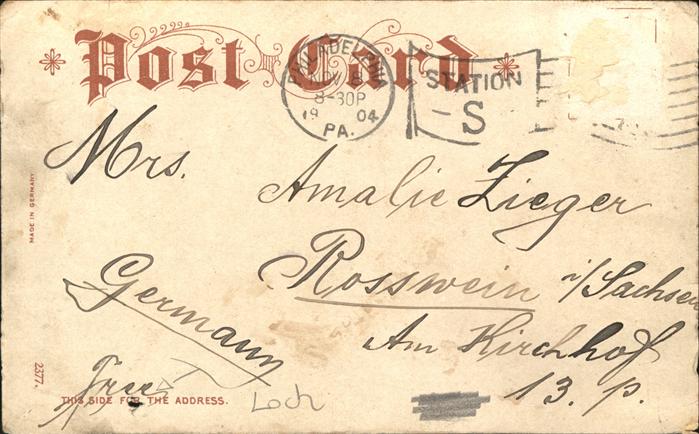 Post Card
PHILADELPHIA
NOV 8
8-30P
19 04
PA.
STATION
S
Mrs. Amalie Zieger
Rosswein i/Sachsen
Germany
Am Kirchhof
13. p.
Free
Loch
THIS SIDE FOR THE ADDRESS.
MADE IN GERMANY
2377.